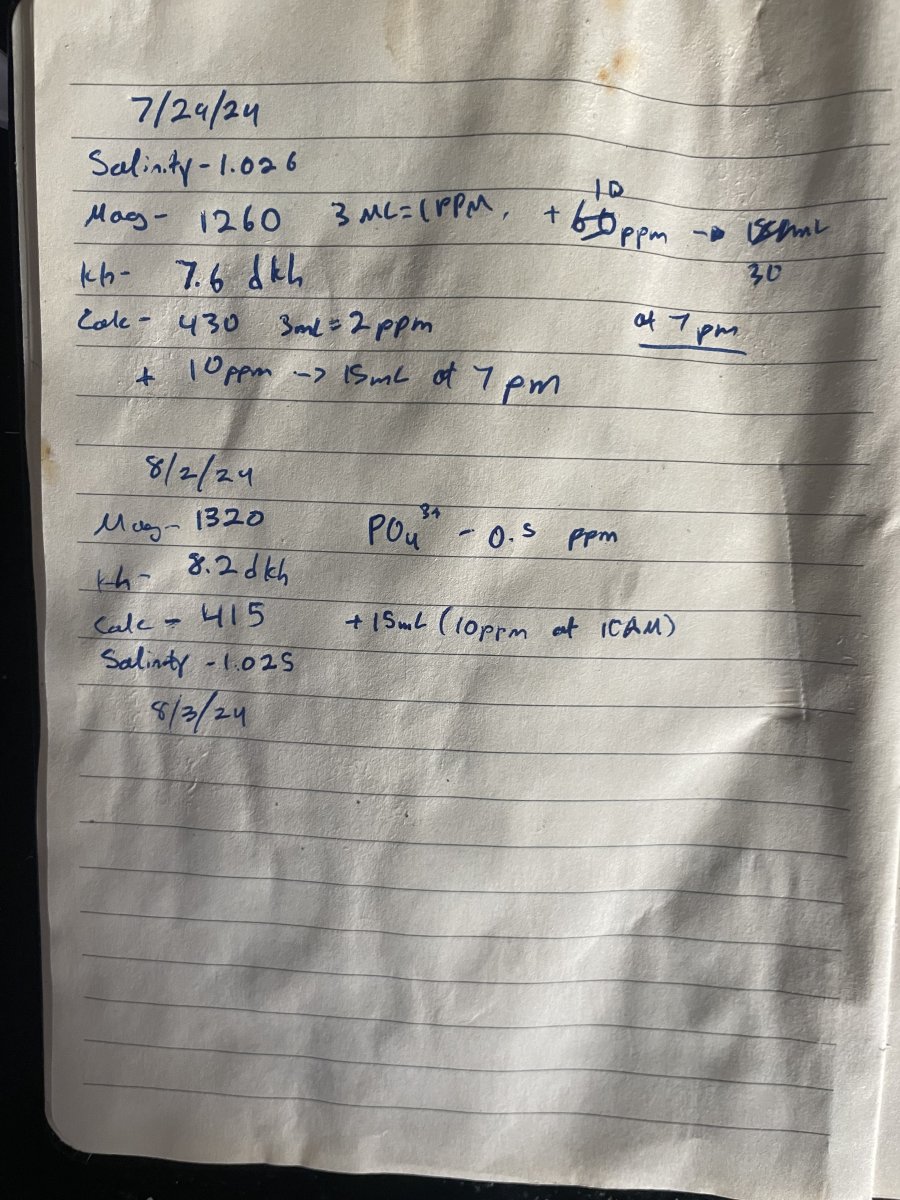 7/29/24
Salinity - 1.026
Mag - 1260 3 ML = 1 PPM, + 10 ppm -> 30
kh - 7.6 dkh
Calc - 430 3mL = 2 ppm at 7 pm
+ 10ppm -> 15mL at 7 pm
8/2/24
Mag - 1320 PO4 3+ - 0.5 ppm
kh - 8.2 dkh
Calc - 415 +15mL (10ppm at 10AM)
Salinity - 1.025
8/3/24